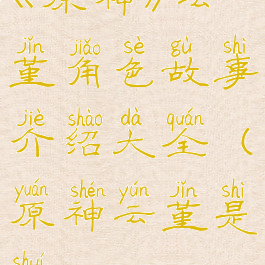 《原神》云
jǐn jiǎo sè gù shì
堇角色故事
jiè shào dà quán
介绍大全（
yuán shén yún jǐn shì
原神云堇是
shuí